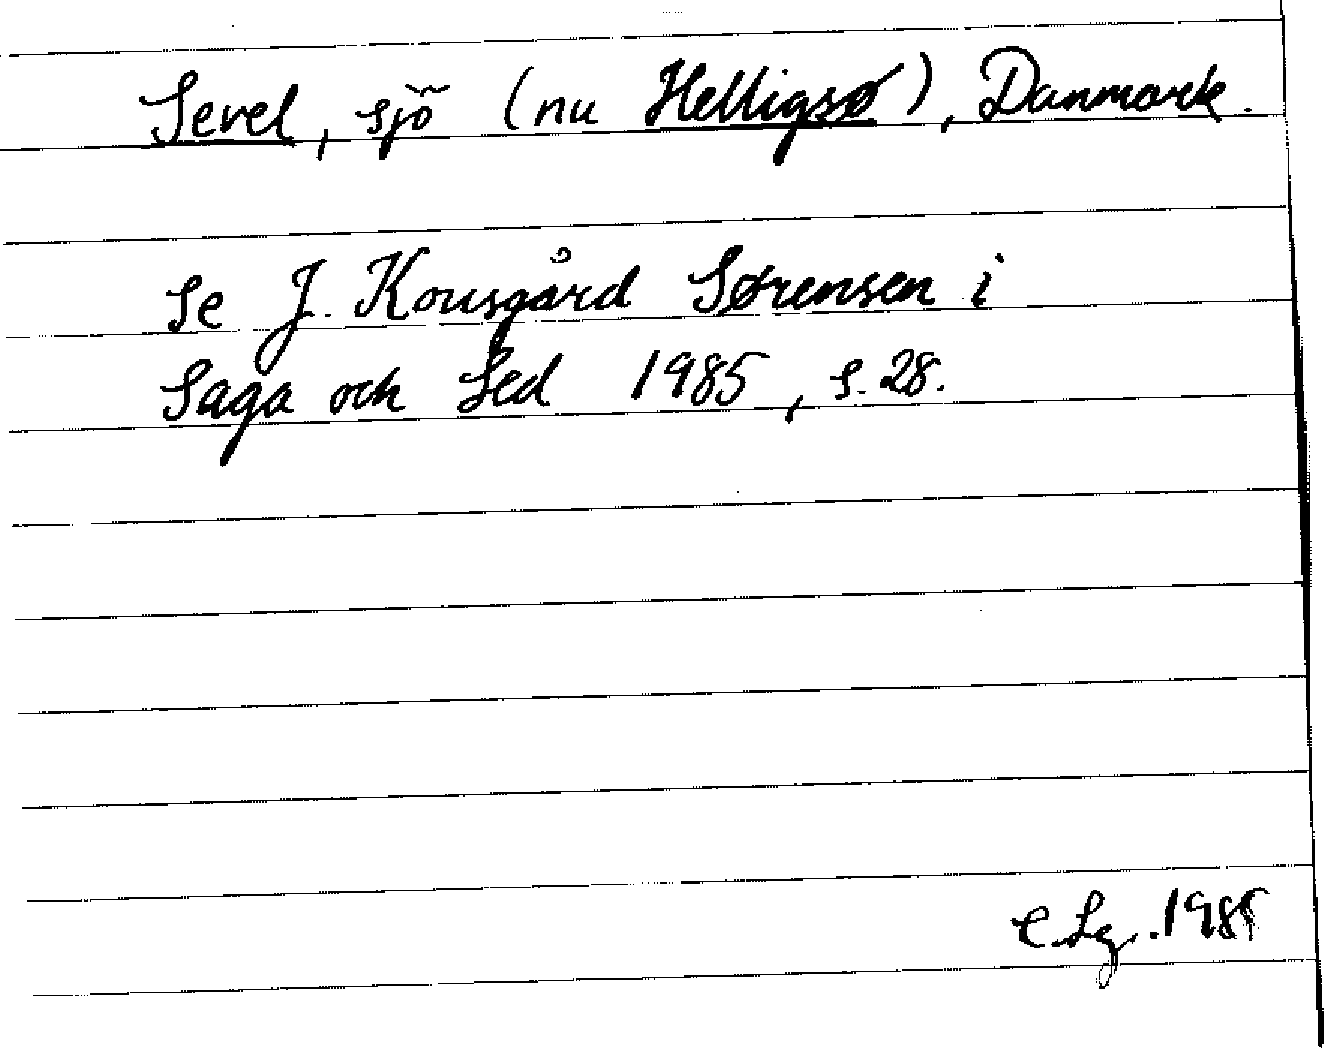 Sevel, sjö (nu Helligsø), Danmark.
Se J. Kousgård Sørensen i
Saga och Sed 1985, s. 28.
1985